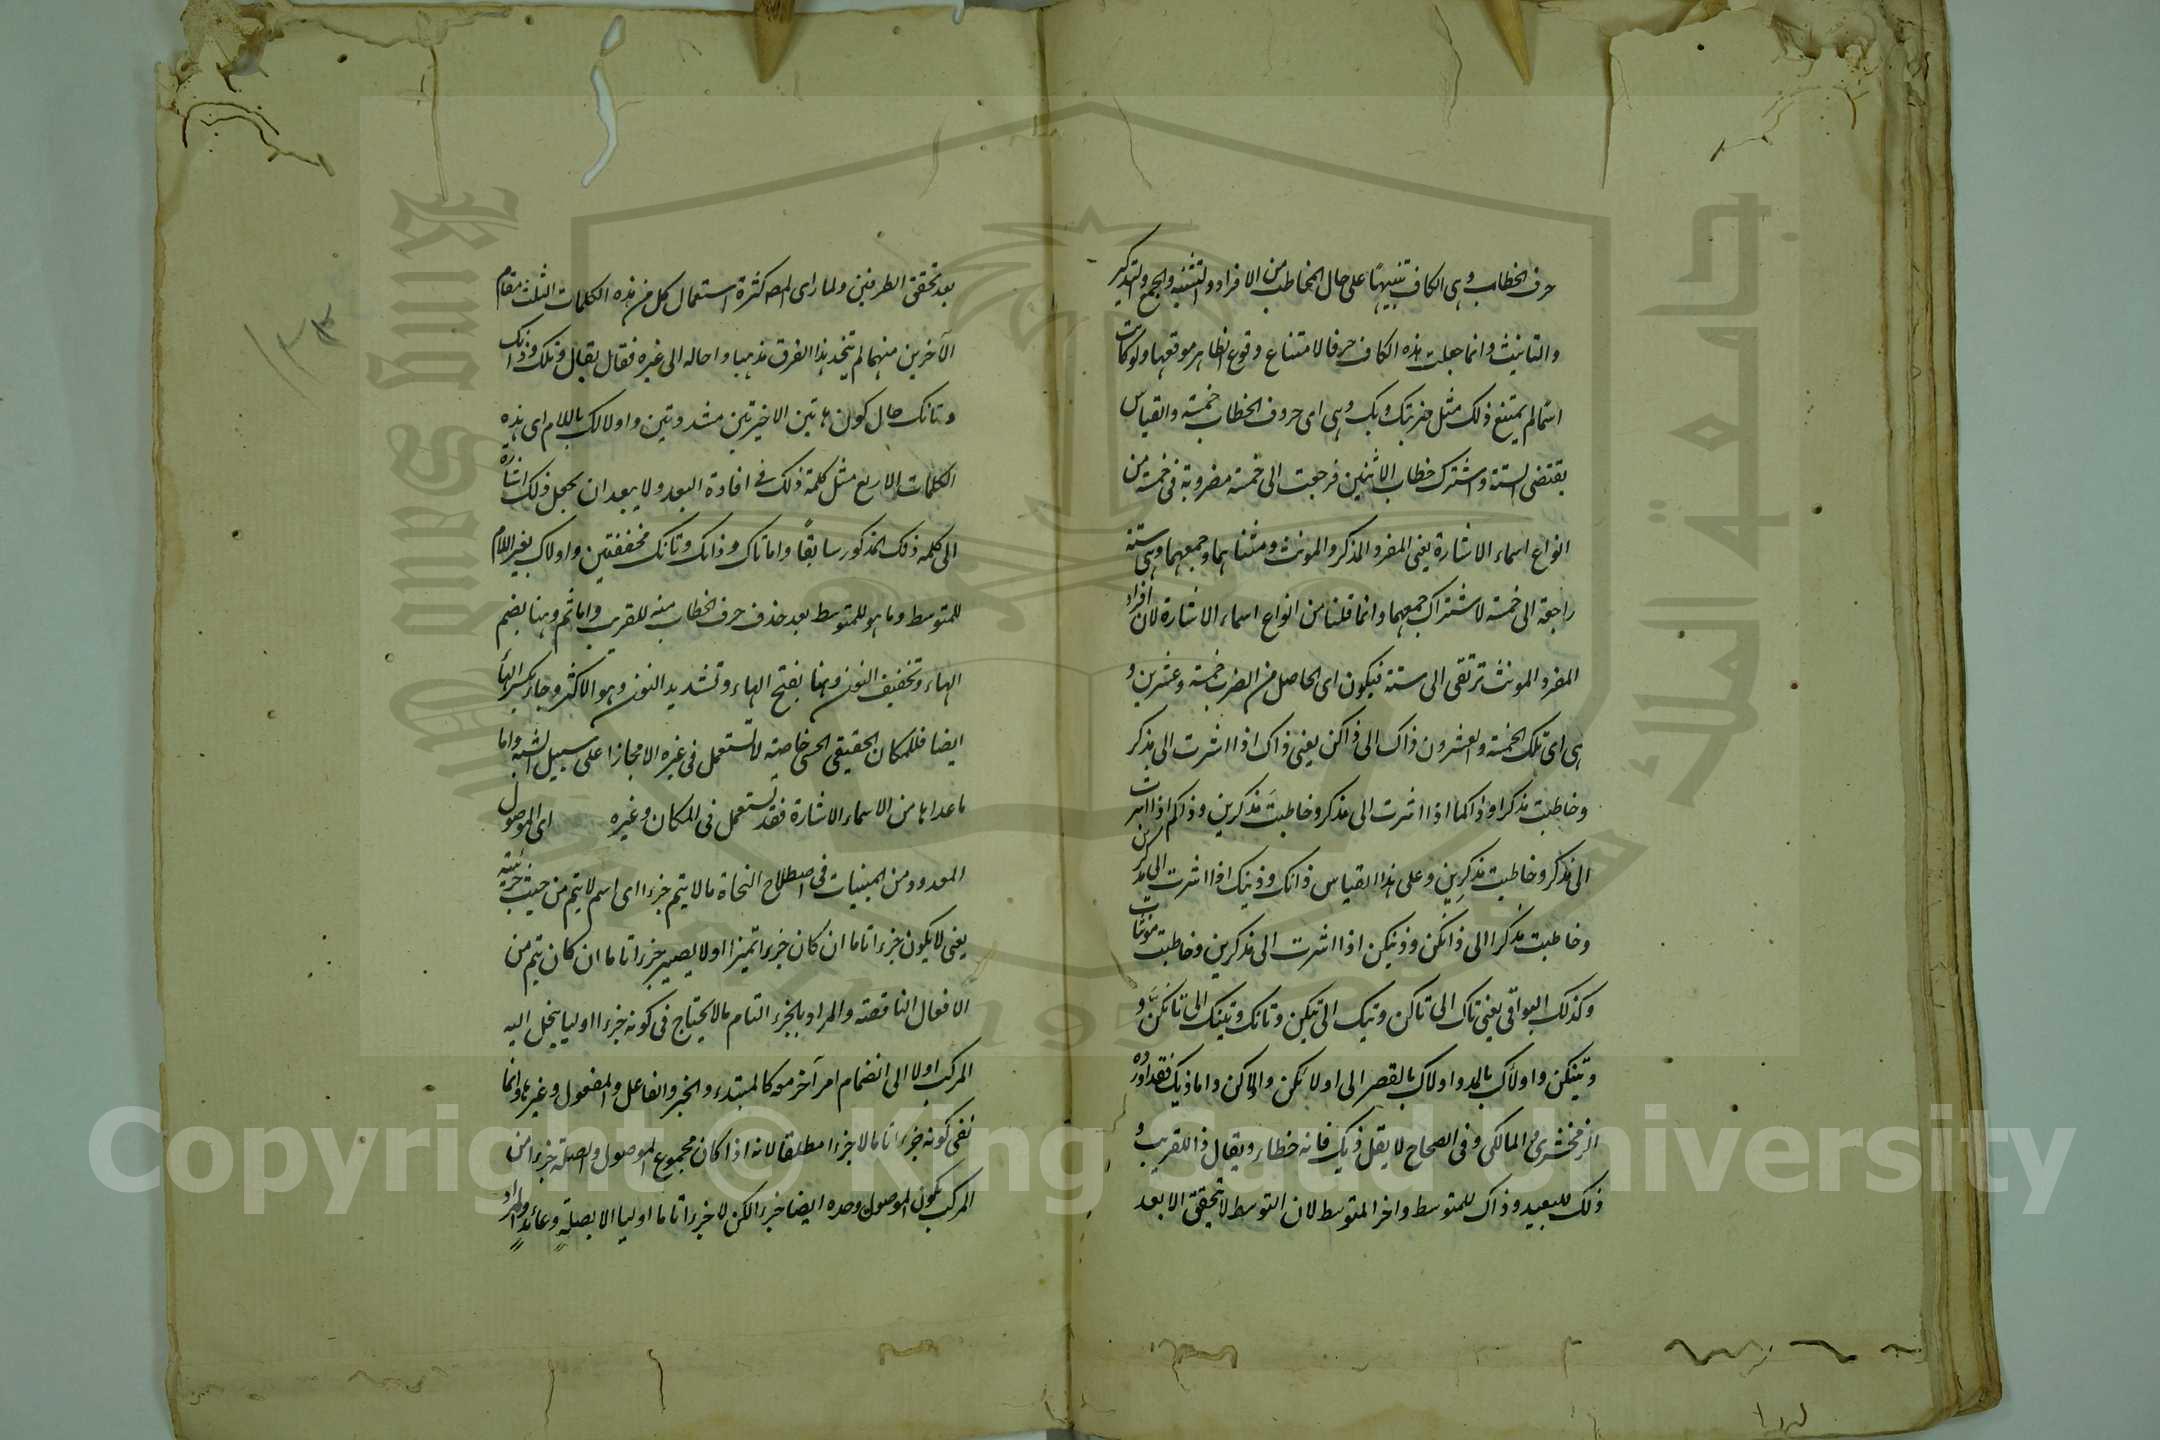 حرف الخطاب وهى الكاف تنبيها على حال المخاطب من الافراد والتثنيه والجمع والتذكير
والتانيث وانما جعلت هذه الكاف حرفا لامتناع وقوع الظاهر موقعها ولو كانت
اسما لم يمتنع ذلك مثل ضربتك وبك وهى اى حروف الخطاب خمسة والقياس
يقتضى الستة واشترك خطاب الاثنين فرجعت الى خمسة مضروبة فى خمسة من
انواع اسماء الاشارة يعنى المفرد المذكر والمونث ومثناهما وجمعهما وهى ستة
راجعة الى خمسة لاشتراك جمعهما وانما قلنا من انواع اسماء الاشارة لان افراد
المفرد المونث ترتقى الى ستة فيكون اى الحاصل من الضرب خمسة وعشرين و
هى اى تلك الخمسة والعشرون ذاك الى ذاكن يعنى ذاك اذا اشرت الى مذكر
وخاطبت مذكرا وذاكما اذا اشرت الى مذكر وخاطبت مذكرين وذاكم اذا اشرت
الى مذكر وخاطبت مذكرين وعلى هذا القياس ذانك وذينك اذا اشرت الى مذكرين
وخاطبت مذكرا الى ذانكن وذينكن اذا اشرت الى مذكرين وخاطبت مونثات
وكذلك البواقى يعنى تاك الى تاكن وتيك الى تيكن وتانك وتينك الى تانكن و
وتينكن واولائك بالمد واولاك بالقصر الى اولائكن واولاكن واما ذيك فقد اورده
الزمخشرى والمالكى وفى الصحاح لا يقل ذيك فانه خطاء ويقال ذا للقريب و
ذلك للبعيد وذاك للمتوسط واخر المتوسط لان التوسط لا يتحقق الا بعد
بعد تحقق الطرفين ولما راى المصـ كثرة استعمال كل من هذه الكلمات الثلث مقام
الآخرين منهما لم يتخذ هذا الفرق مذهبا واحاله الى غيره فقال يقال وتلك وذانك
وتانك حال كون هاتين الاخيرتين مشددتين واولالك باللام اى هذه
الكلمات الاربع مثل كلمة ذلك فى افادة البعد ولا يبعد ان يجعل ذلك اشارة
الى كلمة ذلك المذكور سابقا واما تاك وذانك وتانك مخففتين واولاك بغير اللام
للمتوسط وما هو للمتوسط بعد حذف حرف الخطاب منه للقريب واما ثم وهنا بضم
الهاء وتخفيف النون وهنا بفتح الهاء وتشديد النون وهو الاكثر وجاء بكسر الهاء
ايضا فللمكان الحقيقى الحسى خاصة لا تستعمل فى غيره الا مجازا على سبيل التشبيه واما
ما عداها من الاسماء الاشارة فقد تستعمل فى المكان وغيره اى الموصول
المعدود من المبنيات فى اصطلاح النحاة ما لا يتم جزءا اى اسم لا يتم من حيث جزئيته
يعنى لا يكون جزءا تاما ان كان جزءا تميزا او لا يصير جزءا تاما ان كان يتم من
الافعال الناقصة والمراد بالجزء التام ما لا يحتاج فى كونه جزءا اوليا ينحل اليه
المركب اولا الى انضمام امر آخر معه كالمبتدء والخبر والفاعل والمفعول وغيرها وانما
نفى كونه جزءا تاما لا جزءا مطلقا لانه اذا كان مجموع الموصول والصلة جزءا من
المركب يكون الموصول وحده ايضا جزءا لكن لا جزءا تاما اوليا الا بصلة وعائد والمراد
Copyright © King Saud University